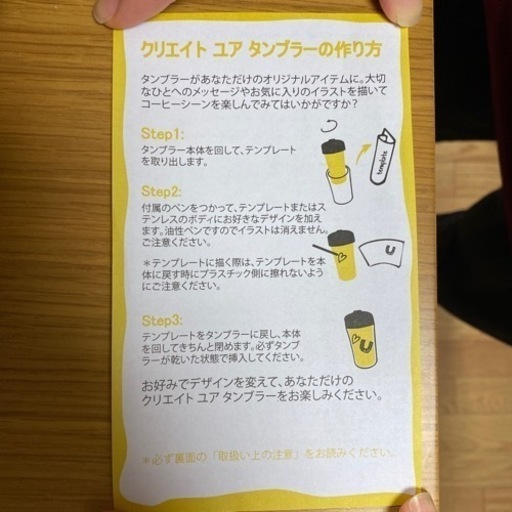 クリエイト ユア タンブラーの作り方
タンブラーがあなただけのオリジナルアイテムに。大切
なひとへのメッセージやお気に入りのイラストを描いて
コーヒーシーンを楽しんでみてはいかがですか？
Step1:
タンブラー本体を回して、テンプレート
を取り出します。
template
Step2:
付属のペンをつかって、テンプレートまたはス
テンレスのボディにお好きなデザインを加え
ます。油性ペンですのでイラストは消えません。
ご注意ください。
＊テンプレートに描く際は、テンプレートを本
体に戻す時にプラスチック側に擦れないよう
にご注意ください。
U
Step3:
テンプレートをタンブラーに戻し、本体
を回してきちんと閉めます。必ずタンブ
ラーが乾いた状態で挿入してください。
U
お好みでデザインを変えて、あなただけの
クリエイト ユア タンブラーをお楽しみください。
＊必ず裏面の「取扱い上の注意」をお読みください。